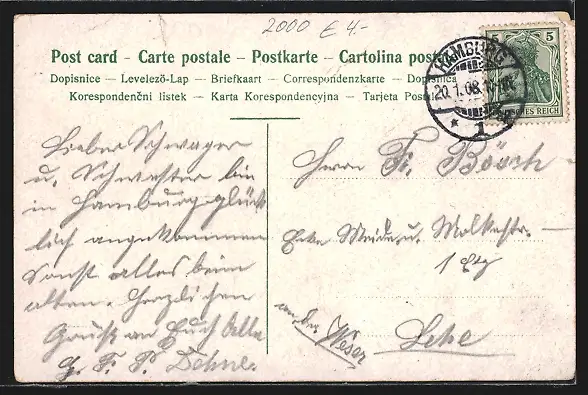 2000 £ 4.-
Post card - Carte postale - Postkarte - Cartolina post
Dopisnice — Levelező-Lap — Briefkaart — Correspondenzkarte — Dopisnica
Korespondenční listek — Karta Korespondencyjna — Tarjeta Postal
5 5
HAMBURG
20.1.08.
* 1
ES REICH
Lieber Schwager
u. Schwester bin
in Hamburg glück
lich angekommen
Sonst alles beim
alten. Herzlichen
Gruß an Euch Alle
G. F. P. Dehne.
Herrn Fr. Bösch
Ecke Weide u. Moltkestr.
1 Etg
Lehe
an der Weser